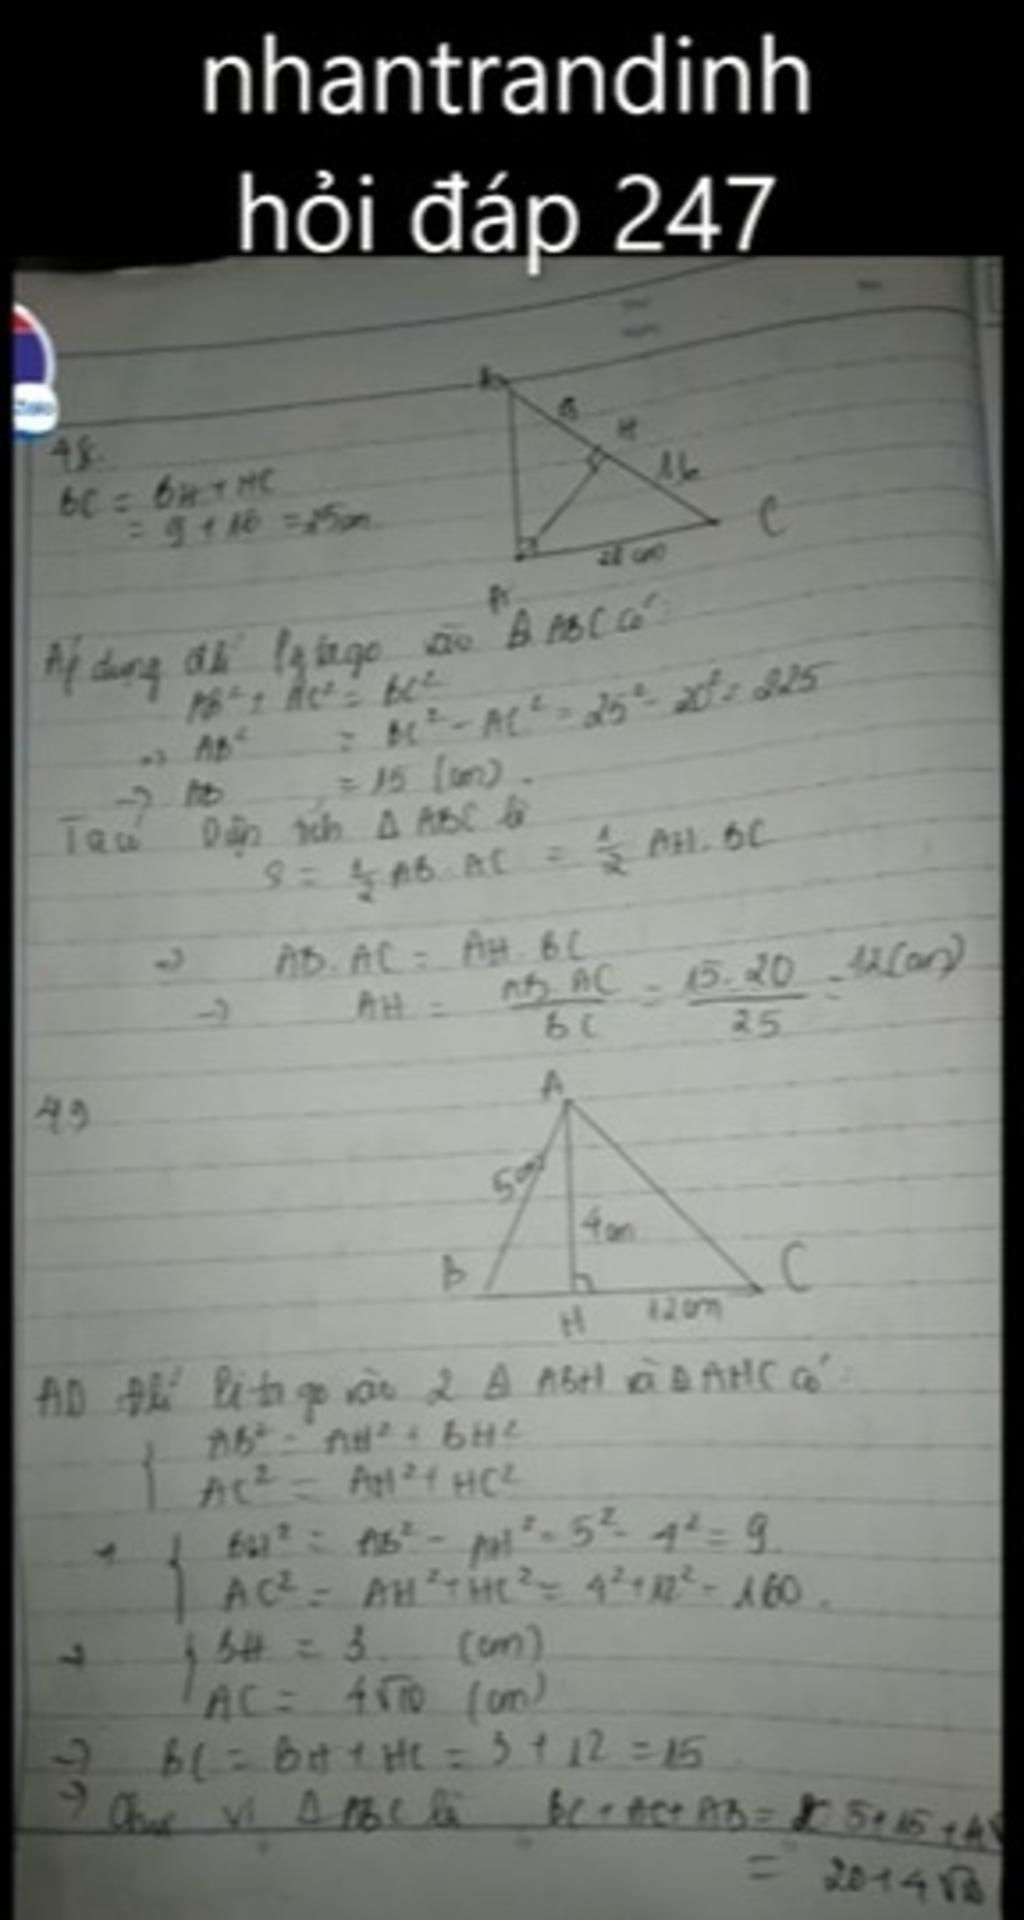 nhantrandinh
hỏi đáp 247
48.
BC = BH + HC
= 9 + 16 = 25 cm
9
H
16
C
Áp dụng đlí Pytago vào Δ ABC có:
AB² + AC² = BC²
=> AB² = BC² - AC² = 25² - 20² = 225
-> AB = 15 (cm).
Ta có Diện tích Δ ABC là
S = 1/2 AB. AC = 1/2 AH. BC
-> AB. AC = AH. BC
-> AH = AB. AC / BC = 15. 20 / 25 = 12 (cm)
49
A
5cm
4cm
B
C
H
12cm
AD Đlí Pitago vào 2 Δ ABH và Δ AHC có:
AB² = AH² + BH²
AC² = AH² + HC²
BH² = AB² - AH² = 5² - 4² = 9
AC² = AH² + HC² = 4² + 12² = 160.
-> BH = 3 (cm)
AC = 4√10 (cm)
-> BC = BH + HC = 3 + 12 = 15
-> Chu vi Δ ABC là BC + AC + AB = 5 + 15 + 4√
= 20 + 4√10